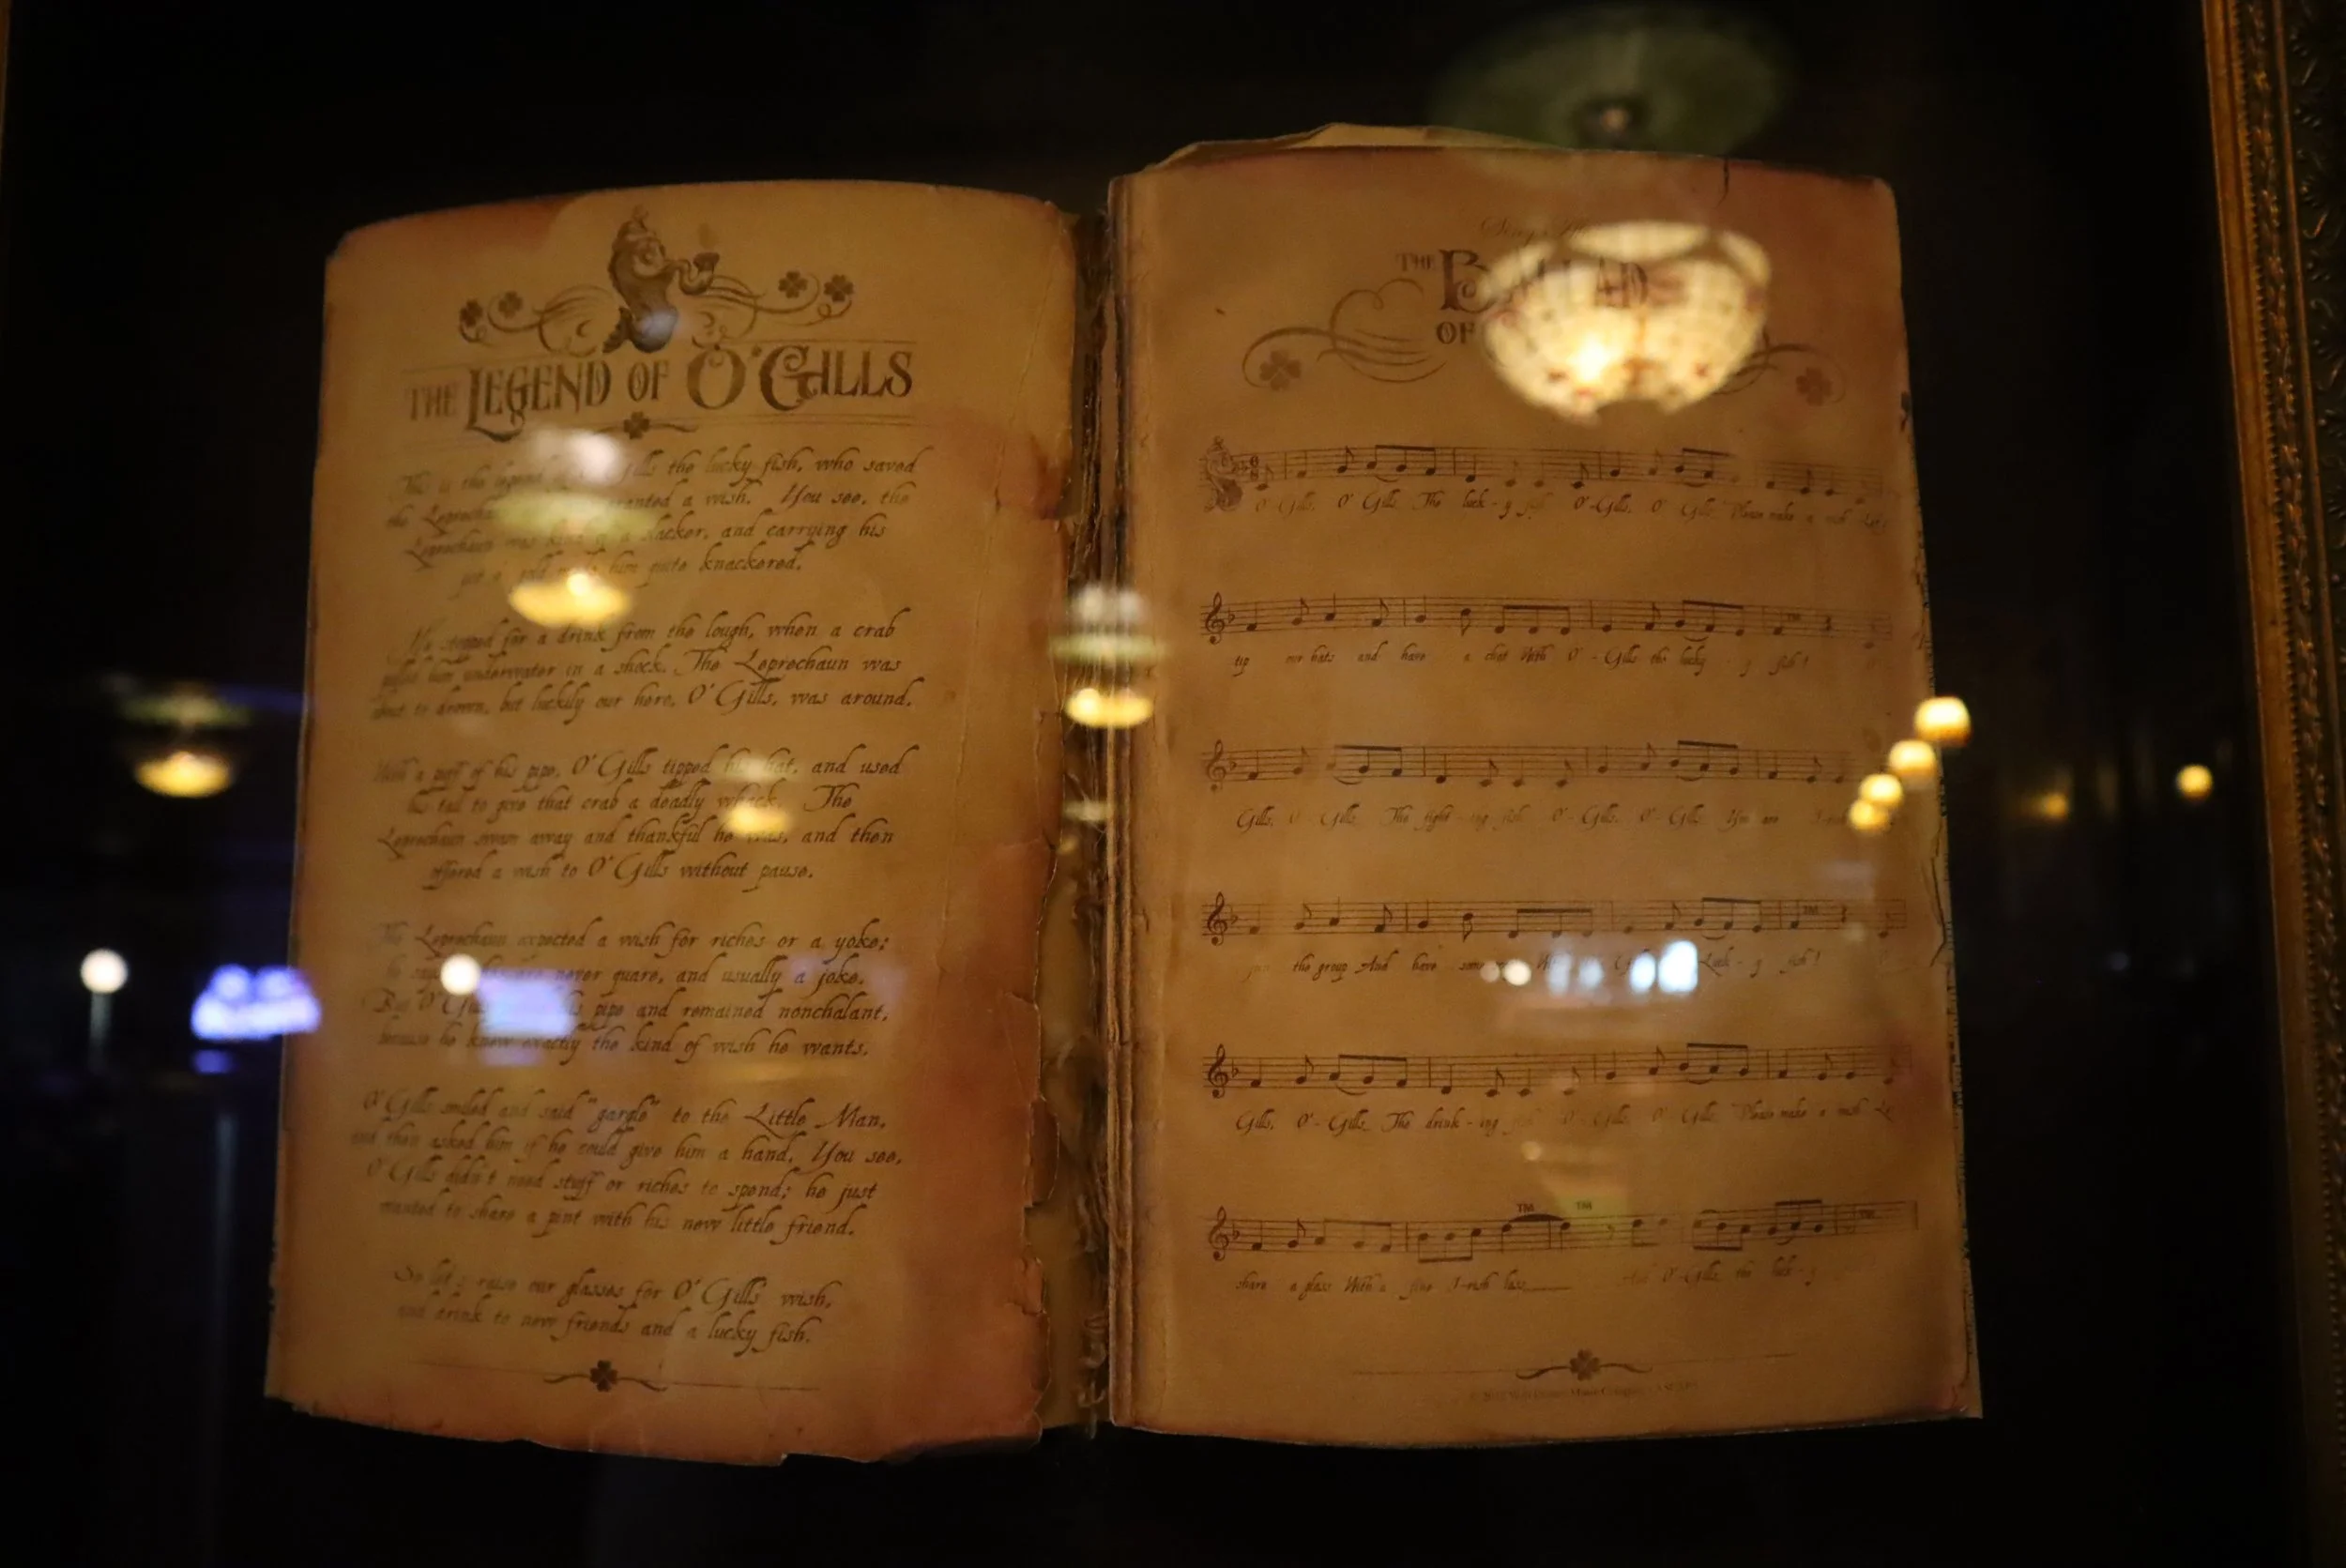 THE LEGEND OF O'GILLS
This is the legend of O'Gills the lucky fish, who saved
the Leprechaun granted a wish. You see, the
Leprechaun was kind of a slacker, and carrying his
pot o' gold made him quite knackered.
He stopped for a drink from the lough, when a crab
pulled him underwater in a shock. The Leprechaun was
about to drown, but luckily our hero, O'Gills, was around.
With a puff of his pipe, O'Gills tipped his hat, and used
his tail to give that crab a deadly whack. The
Leprechaun swam away and thankful he was, and then
offered a wish to O'Gills without pause.
The Leprechaun expected a wish for riches or a yoke;
he never quare, and usually a joke.
But O'Gills his pipe and remained nonchalant,
because he knew exactly the kind of wish he wants.
O'Gills smiled and said "gargle" to the Little Man,
and then asked him if he could give him a hand. You see,
O'Gills didn't need stuff or riches to spend; he just
wanted to share a pint with his new little friend.
So let's raise our glasses for O'Gills' wish,
and drink to new friends and a lucky fish.
THE BALLAD
OF
O' Gills, O' Gills The luck-y fish O'-Gills, O' Gills Please make a wish Let's
tip our hats and have a chat With O'-Gills the lucky - y fish!
Gills, O' Gills The fight-ing fish O'-Gills, O'-Gills You are
the group And have Luck-y fish!
Gills, O'-Gills, The drink-ing fish O'-Gills, O' Gills Please make a wish Let
TM TM
share a glass With a fine I-rish lass And O'-Gills, the luck-y